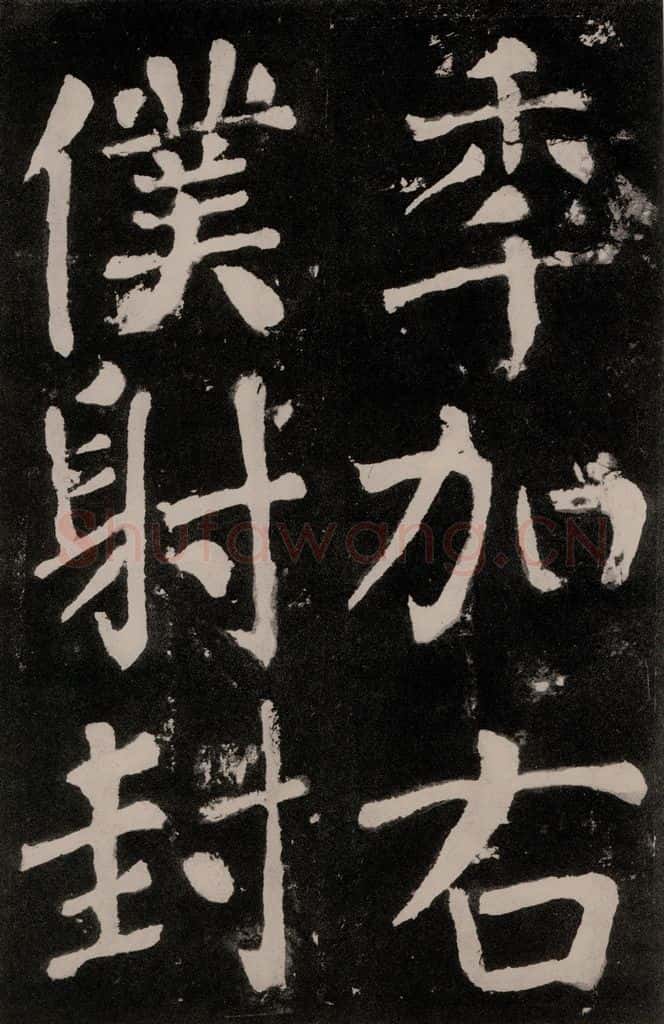 秊加右
僕射封
Shufawang.CN